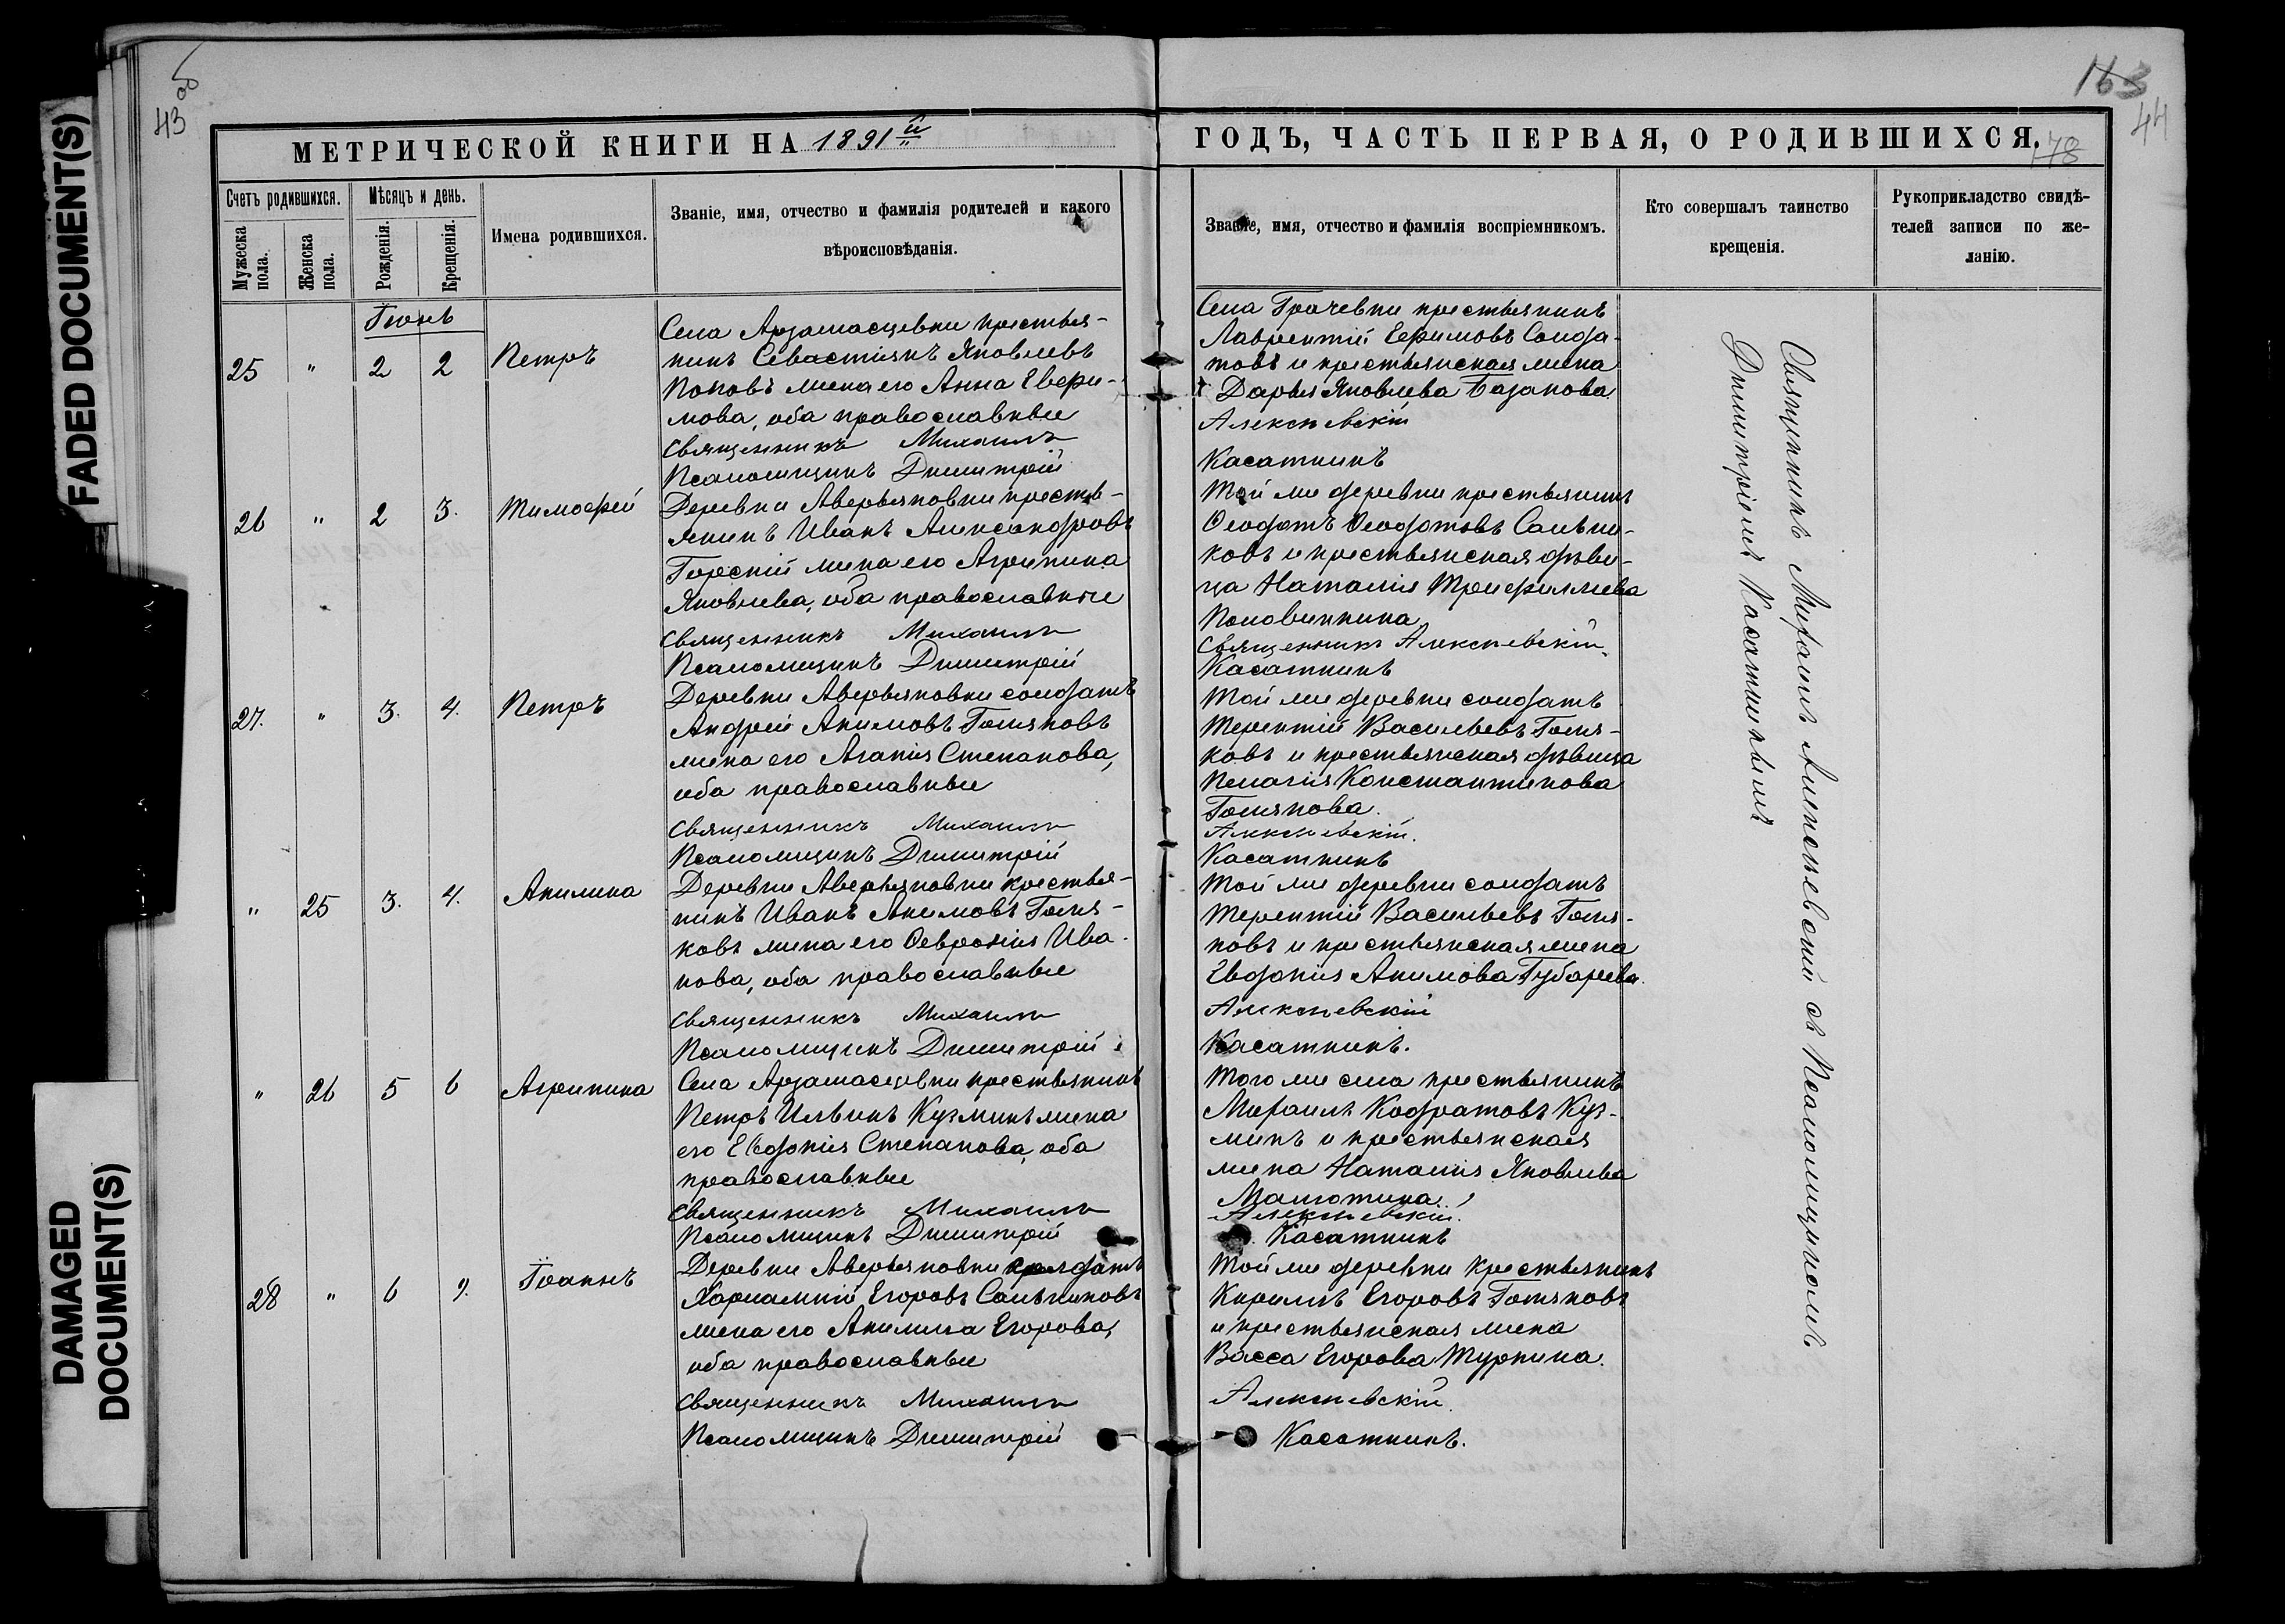 FADED DOCUMENT(S)
DAMAGED
DOCUMENT(S)
43 об
МЕТРИЧЕСКОЙ КНИГИ НА 1891й
Счетъ родившихся.
Мѣсяцъ и день.
Мужеска пола.
Женска пола.
Рожденія.
Крещенія.
Имена родившихся.
Званіе, имя, отчество и фамилія родителей и какого
вѣроисповѣданія.
Іюнь
25 " 2 2 Петръ
Села Арзамасцевки крестья-
нинъ Севастіянъ Яковлевъ
Поповъ жена его Анна Евфи-
мова, оба православные
Священникъ Михаилъ
Псаломщикъ Димитрій
26 " 2 3. Тимофей
Деревни Аверьяновки кресть-
янинъ Иванъ Александровъ
Горскій жена его Агрипина
Яковлева, оба православные
Священникъ Михаилъ
Псаломщикъ Димитрій
27. " 3. 4. Петръ
Деревни Аверьяновки солдатъ
Андрей Акимовъ Голяковъ
жена его Агапія Степанова,
оба православные
Священникъ Михаилъ
Псаломщикъ Димитрій
" 25 3. 4. Акилина
Деревни Аверьяновки крестья-
нинъ Иванъ Акимовъ Голя-
ковъ жена его Февронія Ива-
нова, оба православные
Священникъ Михаилъ
Псаломщикъ Димитрій
" 26 5 6 Агрипина
Села Арзамасцевки крестьянинъ
Петръ Ильинъ Кузминъ жена
его Евдокія Степанова, оба
православные
Священникъ Михаилъ
Псаломщикъ Димитрій
28 " 6 9. Іоаннъ
Деревни Аверьяновки солдатъ
Харлампій Егоровъ Сальниковъ
жена его Акилина Егорова,
оба православные
Священникъ Михаилъ
Псаломщикъ Димитрій
163
44
178
ГОДЪ, ЧАСТЬ ПЕРВАЯ, О РОДИВШИХСЯ.
Званіе, имя, отчество и фамилія воспріемникомъ.
Кто совершалъ таинство
крещенія.
Рукоприкладство свидѣ-
телей записи по же-
ланію.
Села Грачевки крестьянинъ
Лаврентій Ефимовъ Солда-
товъ и крестьянская жена
Дарья Яковлева Базанова
Алексѣевскій
Касаткинъ
Той же деревни крестьянинъ
Феодотъ Феодотовъ Сальни-
ковъ и крестьянская дѣви-
ца Наталія Трифиллиева
Половинкина
Священникъ Алексѣевскій.
Касаткинъ
Той же деревни солдатъ
Терентій Васильевъ Голя-
ковъ и крестьянская дѣвица
Пелагія Константинова
Голякова.
Алексѣевскій.
Касаткинъ
Той же деревни солдатъ
Терентій Васильевъ Голя-
ковъ и крестьянская жена
Евдокія Акимова Губарева.
Алексѣевскій
Касаткинъ.
Того же села крестьянинъ
Михаилъ Кодратовъ Куз-
минъ и крестьянская
жена Наталія Яковлева
Малютина
Алексѣевскій.
Касаткинъ
Той же деревни крестьянинъ
Кириллъ Егоровъ Голяковъ
и крестьянская жена
Васса Егорова Туркина.
Алексѣевскій
Касаткинъ.
Священникъ Михаилъ Алексѣевскій съ Псаломщикомъ
Димитріемъ Касаткинымъ